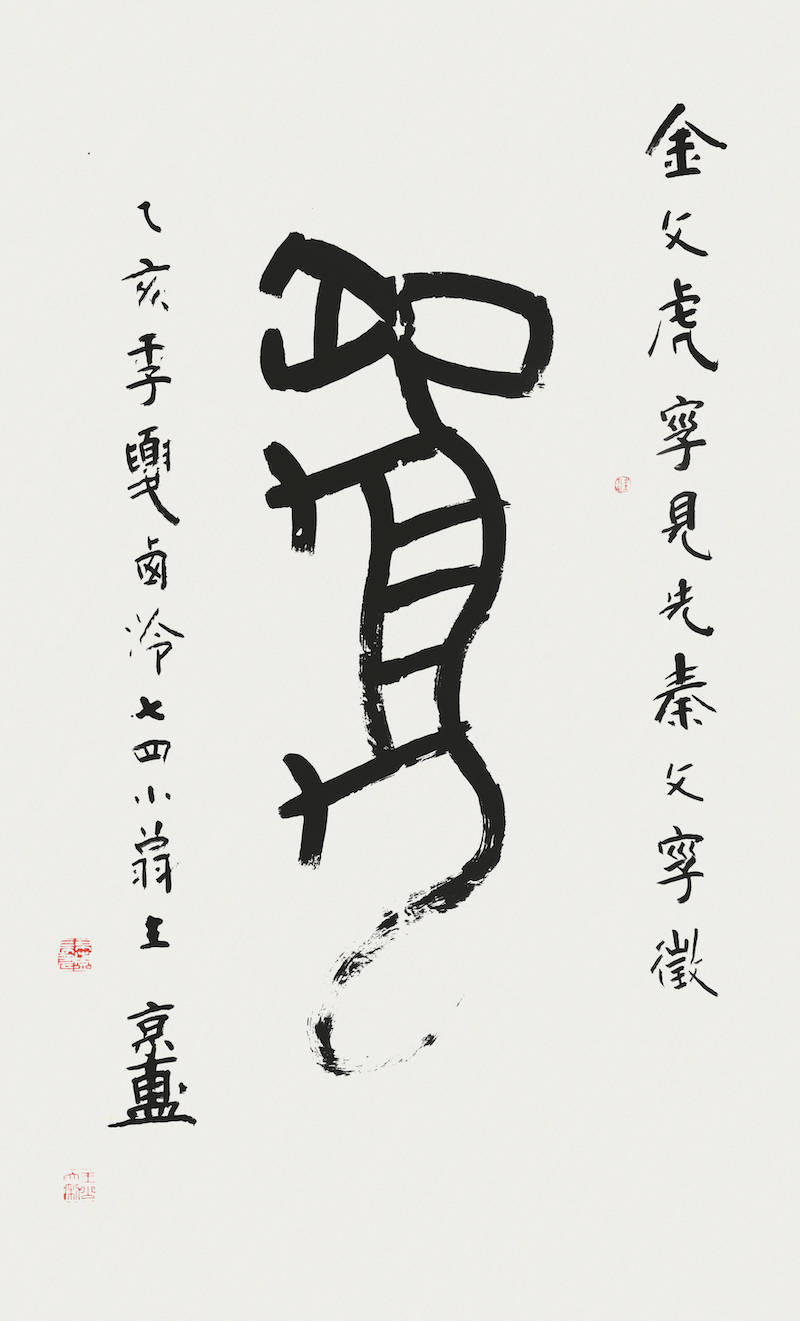 金文虎字見先秦文字徵
虎
乙亥季夏西泠七四小翁王京盙